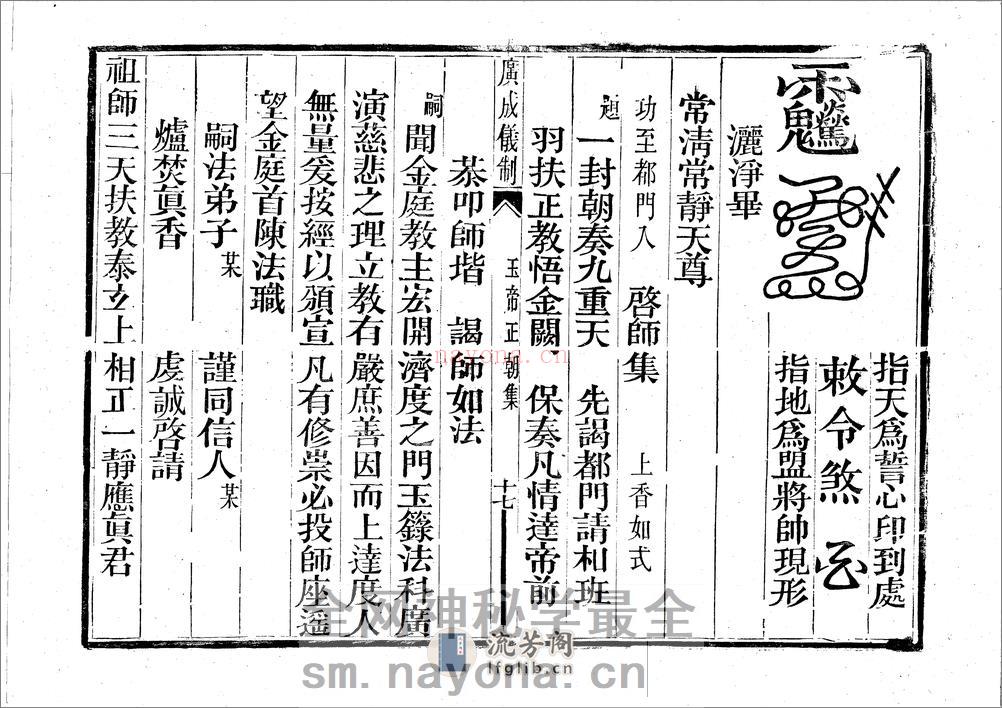 指天爲誓心印到處
敕令煞
指地爲盟將帥現形
灑淨畢
常淸常靜天尊
功至都門入 啓師集 上香如式
一封朝奏九重天 先謁都門請相班
羽扶正敎悟金闕 保奏凡情達帝前
叩師堦 謁師如法
廣成儀制 玉帝正朝集 十七
嗣 聞金庭敎主宏開濟度之門玉籙法科廣
演慈悲之理立敎有嚴庶善因而上達度人
無量爰按經以頒宣凡有修崇必投師座遥
望金庭首陳法職
嗣法弟子某 謹同信人某
爐焚眞香 虔誠啓請
祖師三天扶敎泰玄上相正一靜應眞君
nayona.cn
全网神秘学最全
流芳阁
lfglib.cn
sm.nayona.cn